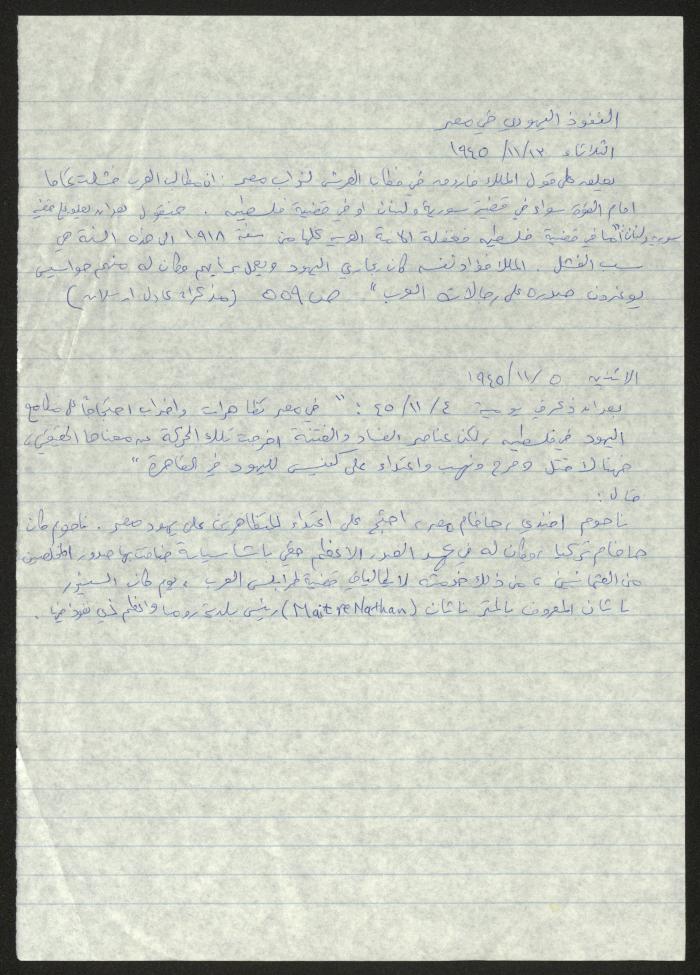 النفوذ اليهودي في مصر
الثلاثاء ١٣/ ١١/ ١٩٤٥
يعلق على قول الملك فاروق في خطاب العرش لنواب مصر: ان مطالب العرب مثلت تماما
امام القوة سواء في قضية سورية ولبنان او في قضية فلسطين. فيقول بعد ان
سورية ولبنان: أما في قضية فلسطين فغفلة الامة العربية كلها من سنة ١٩١٨ الى هذه السنة هي
سبب الفشل. الملك فؤاد نفسه كان يجاري اليهود ويعمل برأيهم وكان له منهم جواسيس
يوغرون صدره على رجالات العرب" ص ٥٥٩ (مذكرات عادل ارسلان)
الاثنين ٥ /١١/ ١٩٤٥
بعد ان ذكر في يومية ٤/ ١١/ ٤٥: " في مصر تظاهرات واضراب احتجاجا على مطامع
اليهود في فلسطين، لكن عناصر الفساد والفتنة اخرجت تلك الحركة عن معناها الحقيقي،
فهنالك قتل وجرح ونهب واعتداء على كنيس لليهود في القاهرة "
قال:
ناحوم افندي، حاخام مصر، احتج على اعتداء المتظاهرين على يهود مصر. ناحوم كان
حاخام تركيا، وكان له في عهد الصدر الاعظم حقي باشا سياسة ضاقت بها صدور المخلصين
من العثمانيين، من ذلك خدمته لايطاليا في قضية طرابلس الغرب، يوم كان السنيور
ناثان المعروف بالمتر ناثان (Maitre Nathan) رئيس بلدية روما واعظم ذي نفوذ فيها.